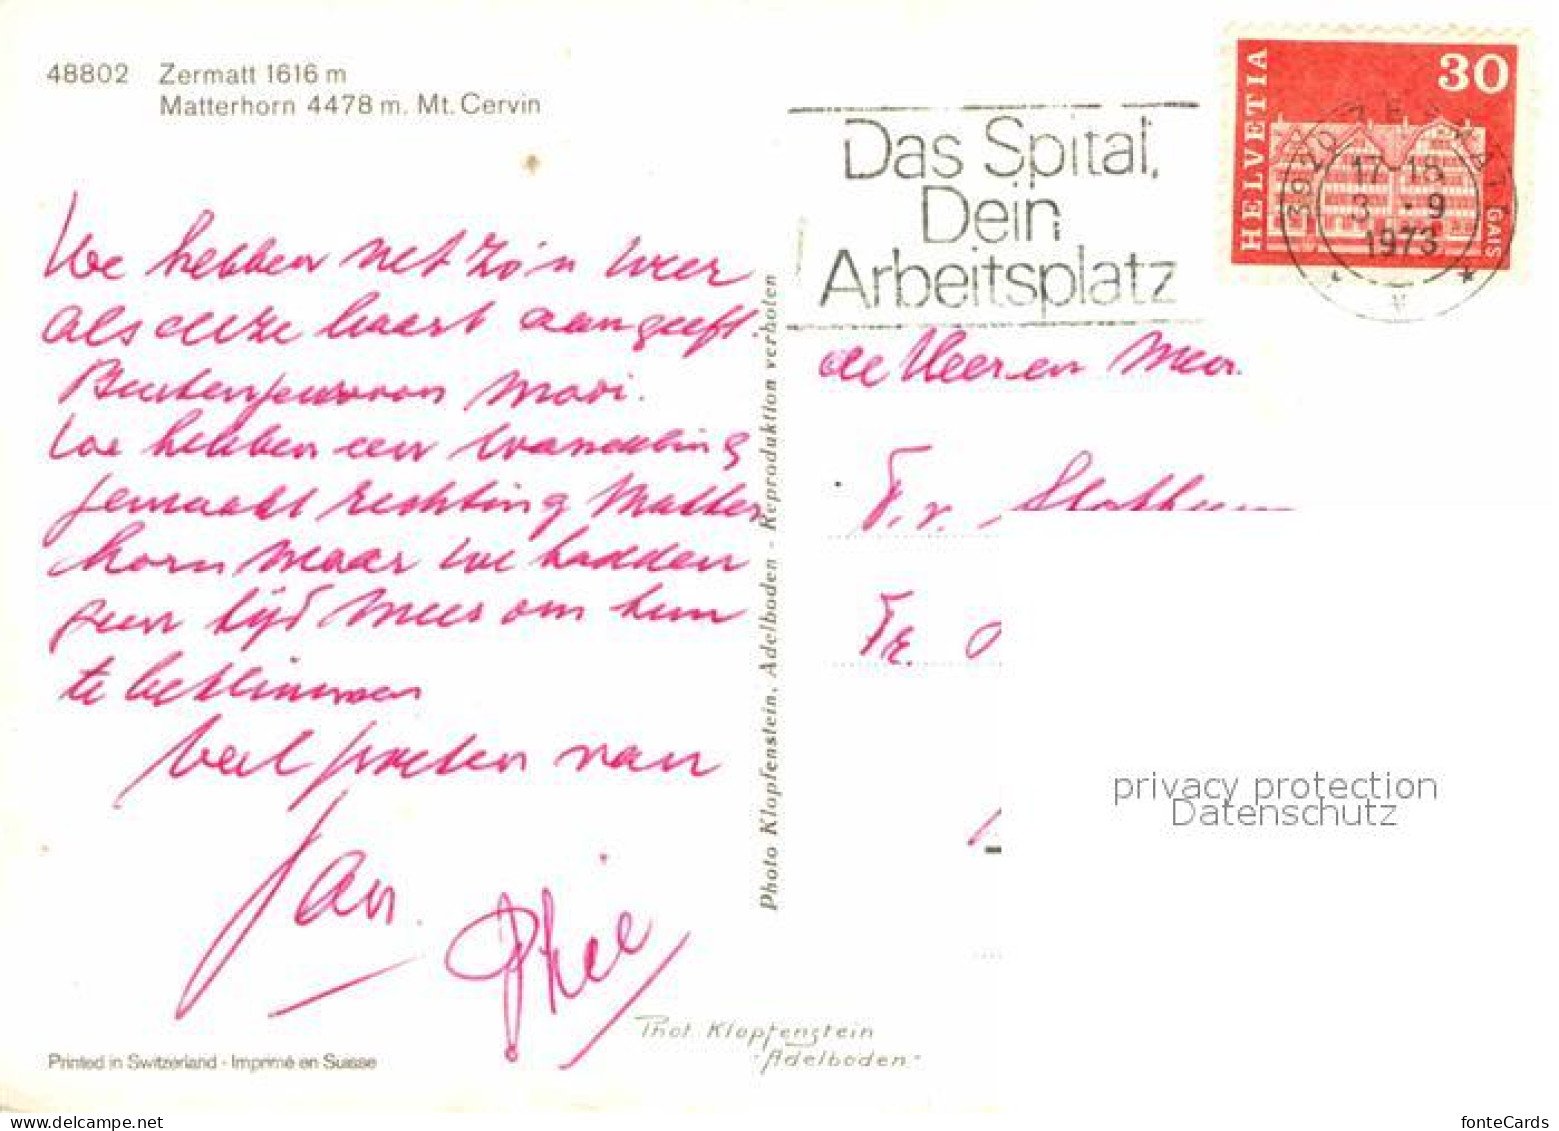 48802 Zermatt 1616 m
Matterhorn 4478 m. Mt. Cervin
We hebben net zo'n weer
als deze kaart aangeeft.
Buitengewoon mooi.
We hebben een wandeling
gemaakt richting Matter
horn maar we hadden
geen tijd meer om hem
te beklimmen
veel groeten van
Jan.
Photo Klopfenstein, Adelboden - Reproduktion verboten
Printed in Switzerland - Imprimé en Suisse
Phot. Klopfenstein
Adelboden
Das Spital,
Dein
Arbeitsplatz
HELVETIA
30
GAIS
3920 ZERMATT
17-18
3.-9
1973
de Heer en Mevr.
F. v.
privacy protection
Datenschutz
www.delcampe.net
fonteCards